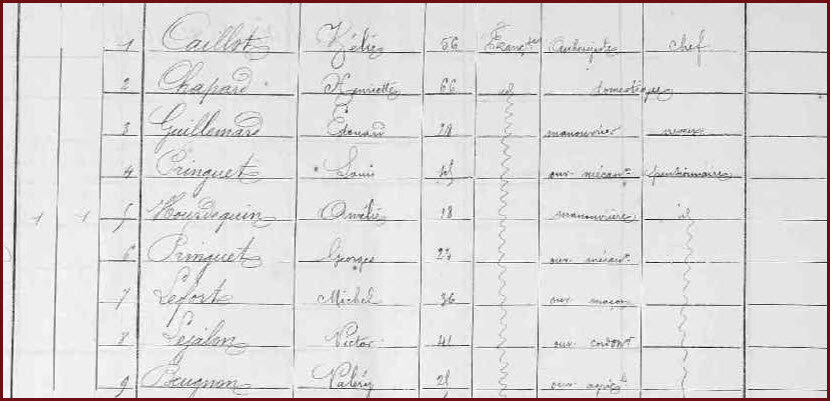 1 Caillot Zélie 56 Franç^se Aubergiste chef
2 Chapard Henriette 66 id domestique
3 Guillemard Edouard manouvrier neveu
4 Pringuet Louis ouv. mécan^n pensionnaire
1 1 5 Hourdequin Amélie 18 manouvrière id
6 Pringuet Georges 23 ouv. mécan^n
7 Lefort Michel 36 ouv maçon
8 Lejalon Victor 41 ouv. cordon^r
9 Beugnon Valéry ouv